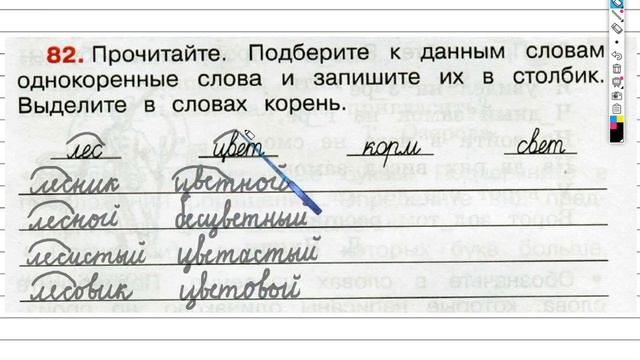 82. Прочитайте. Подберите к данным словам
однокоренные слова и запишите их в столбик.
Выделите в словах корень.
лес цвет корм свет
лесник цветной
лесной бесцветный
лесистый цветастый
лесовик цветовой